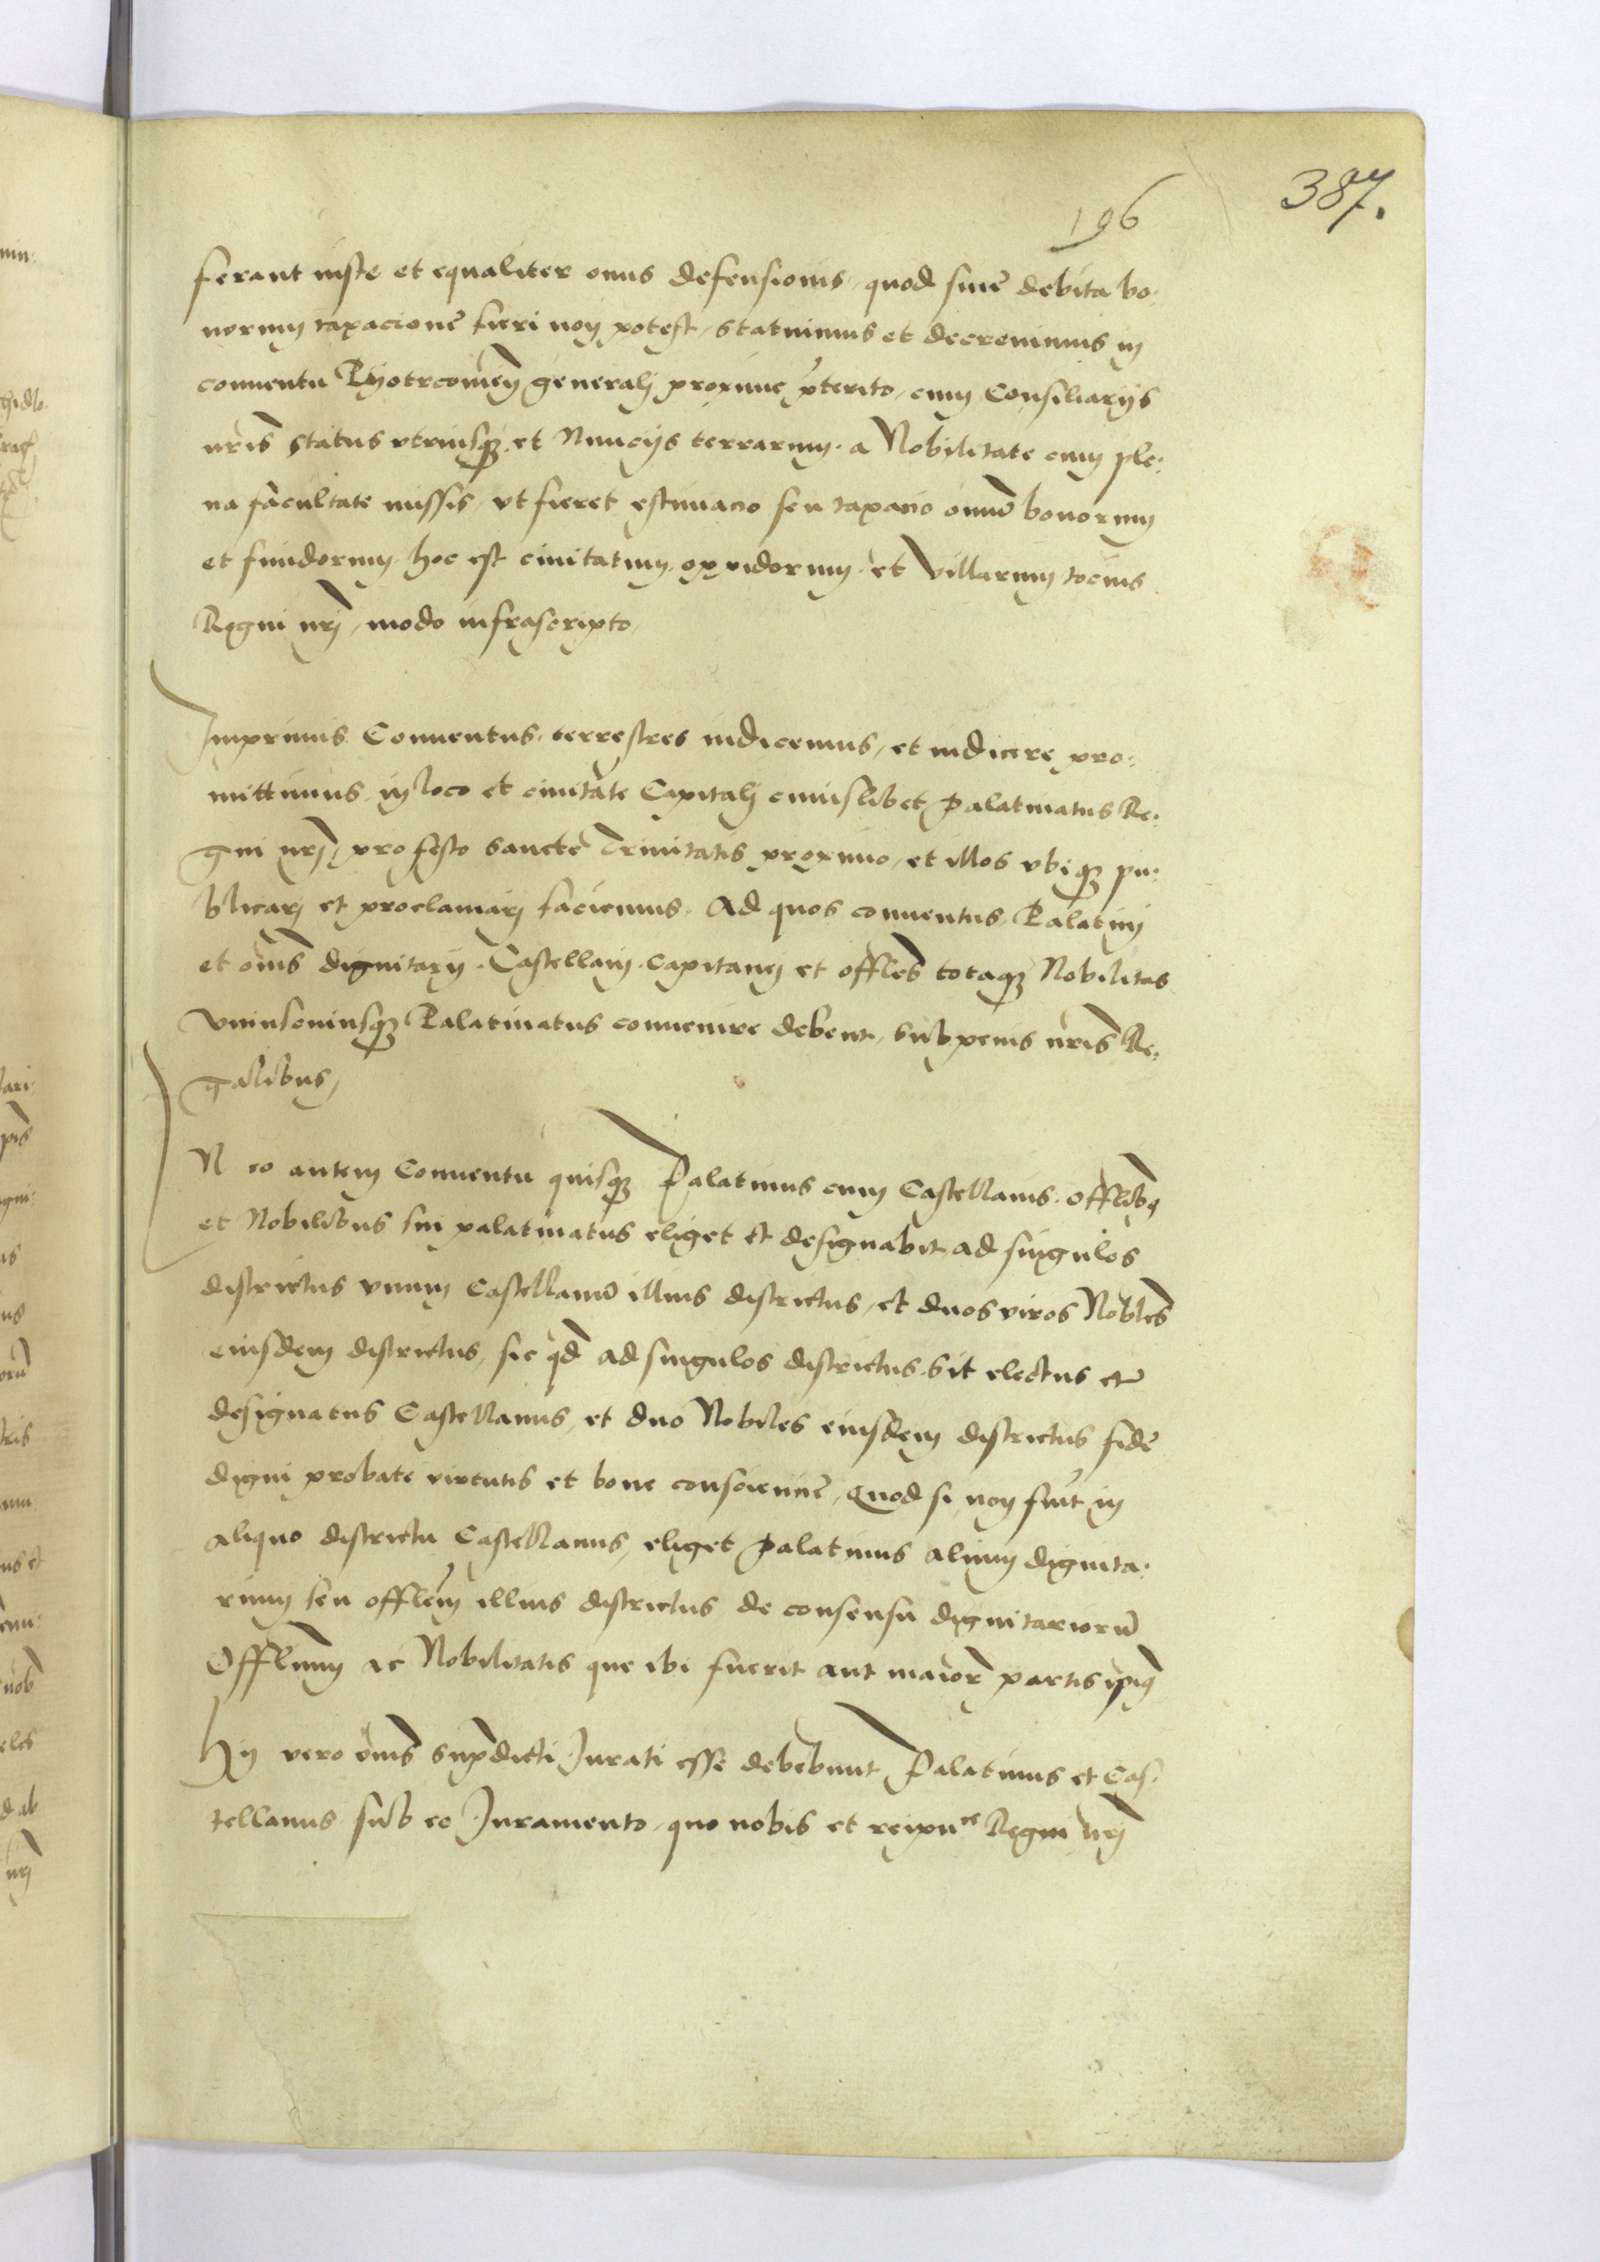 387.
196
ferant iuste et equaliter onus defensionis, quod sine debita bo-
norum taxacione fieri non potest, Statuimus et decrevimus in
conventu Pyotrcovien generalj proxime pterito, cum Consiliarijs
nris Status utriusq et Nuncijs terrarum a Nobilitate cum ple-
na facultate missis, ut fieret estimacio seu taxacio omniu bonorum
et fundorum, hoc est civitatum, oppidorum et villarum tocius
Regni nrj, modo infrascripto,
Imprimis Conventus terrestres indicemus, et indicere pro-
mittimus, in loco et civitate Capitalj cuiuslibet Palatinatus Re-
gni nrj, pro festo sancte Trinitatis proximo, et illos ubiq pu-
blicarj et proclamarj faciemus, Ad quos conventus Palatini
et oms dignitarij, Castellanj, Capitanej et offles totaq Nobilitas
uniuscuiusq Palatinatus convenire debent, sub penis nris Re-
galibus,
IN eo autem Conventu quisq Palatinus cum Castellanis, Offlibq
et Nobilibus sui palatinatus eliget et designabit ad singulos
districtus unum Castellanu illius districtus, et duos viros Nobles
eiusdem districtus, sic qd ad singulos districtus sit electus et
designatus Castellanus, et duo Nobiles eiusdem districtus fide
digni probate virtutis et bone consciencie, Quod si non fuit in
aliquo districtu Castellanus, eliget Palatinus alium dignita-
rium seu offlem illius districtus de consensu dignitarioru
Offlium ac Nobilitatis que ibi fuerit aut maior partis ipiq
Hij vero oms supdicti Jurati esse debebunt, Palatinus et Cas-
tellanus sub eo Juramento, quo nobis et reipu ce Regni nrj